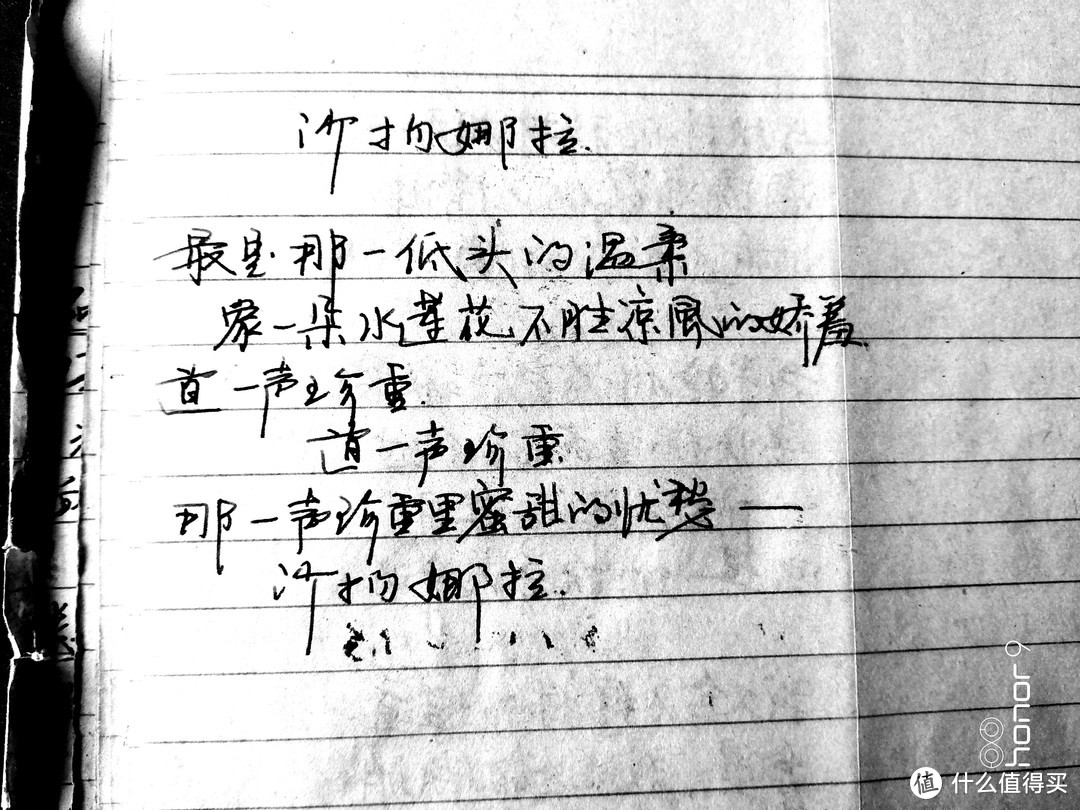 沙扬娜拉
最是那一低头的温柔
象一朵水莲花不胜凉风的娇羞
道一声珍重
道一声珍重
那一声珍重里蜜甜的忧愁——
沙扬娜拉
honor 9
值 什么值得买